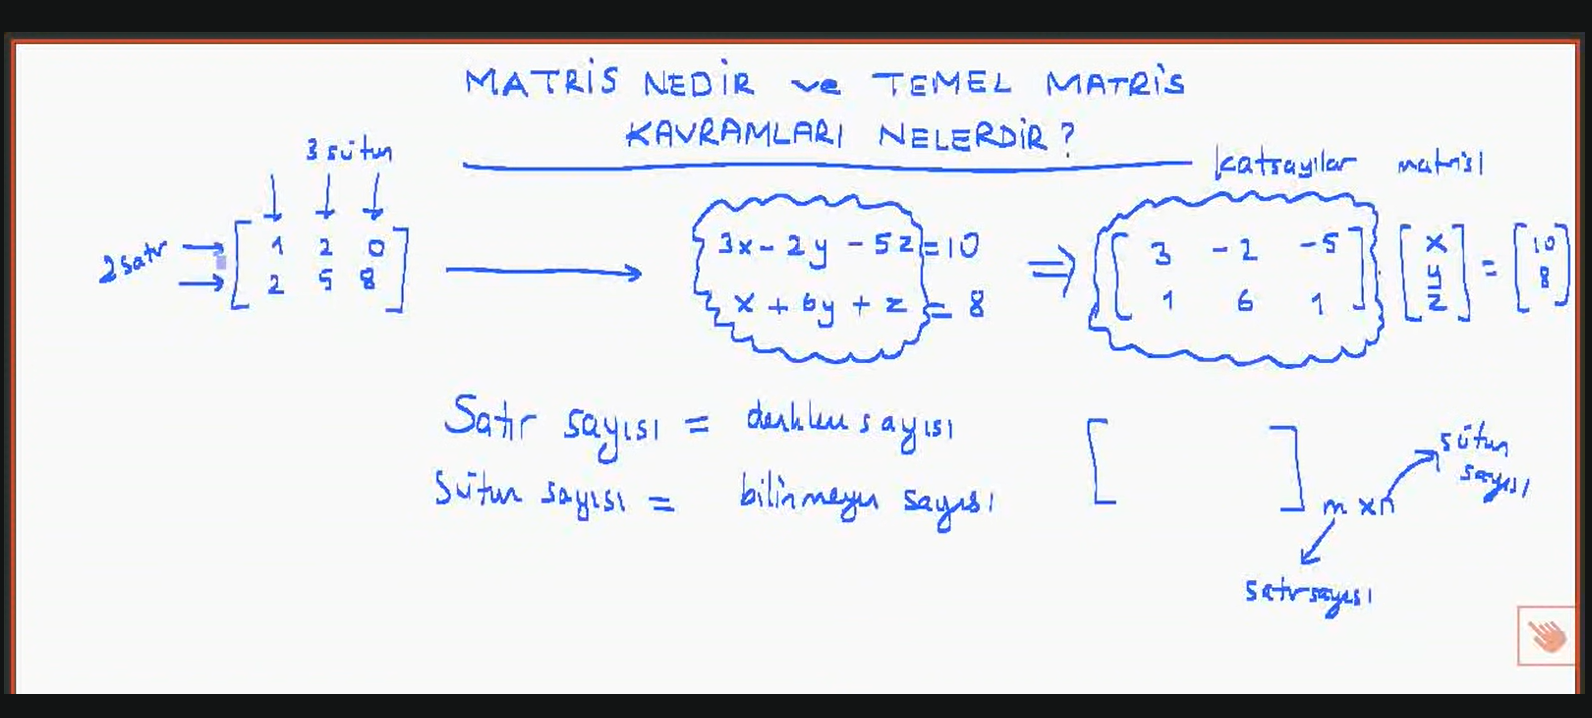 MATRİS NEDİR ve TEMEL MATRİS
KAVRAMLARI NELERDİR?
3 sütun
2 satır
1 2 0
2 5 8
3x - 2y - 5z = 10
x + 6y + z = 8
⇒
katsayılar matrisi
3 -2 -5
1 6 1
x
y
z
=
10
8
Satır sayısı = denklem sayısı
Sütun sayısı = bilinmeyen sayısı
m x n
sütun
sayısı
satır sayısı